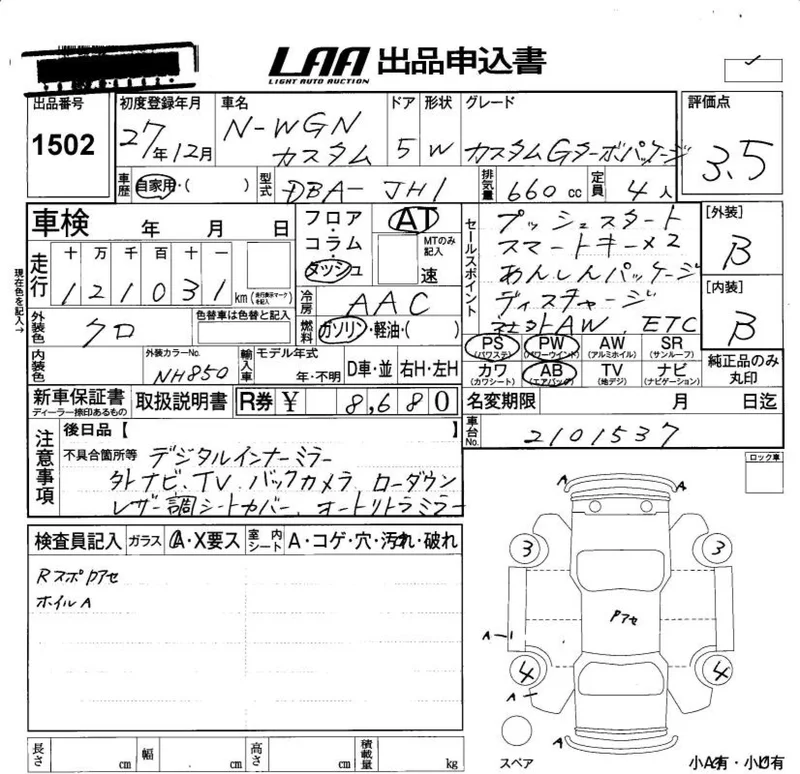 LAA 出品申込書
LIGHT AUTO AUCTION
出品番号 1502
初度登録年月 27年12月
車名 N-WGN カスタム
ドア 5
形状 W
グレード カスタムGターボパッケージ
評価点 3.5
車歴 自家用・( )
型式 DBA-JH1
排気量 660cc
定員 4人
車検 年 月 日
フロア・コラム・ダッシュ
AT
MTのみ記入
速
セールスポイント
プッシュスタート
スマートキー×2
あんしんパッケージ
ディスチャージ
社外AW、ETC
[外装] B
[内装] B
現在色を記入→
走行 十 万 千 百 十 一
121031 km (走行表示マークを記入)
冷房 AAC
燃料 ガソリン・軽油・( )
外装色 クロ
色替車は色替と記入
内装色
外装カラーNo. NH850
輸入車 モデル年式 年・不明
D車・並 右H・左H
PS (パワステ) PW (パワーウインド) AW (アルミホイル) SR (サンルーフ)
カワ (カワシート) AB (エアバッグ) TV (地デジ) ナビ (ナビゲーション)
純正品のみ丸印
新車保証書 ディーラー捺印あるもの
取扱説明書
R券 ¥ 8,680
名変期限 月 日迄
車台No. 2101537
注意事項
後日品【 】
不具合箇所等 デジタルインナーミラー
外ナビ、TV、バックカメラ、ローダウン
レザー調シートカバー、オートリトラミラー
ロック車
検査員記入 ガラス A・X要ス 室内シート A・コゲ・穴・汚れ・破れ
Rスポ Pアセ
ホイルA
A A
3 3
Pアセ
A-1
4 4
A
スペア
小A有・小U有
長さ cm 幅 cm 高さ cm 積載量 kg